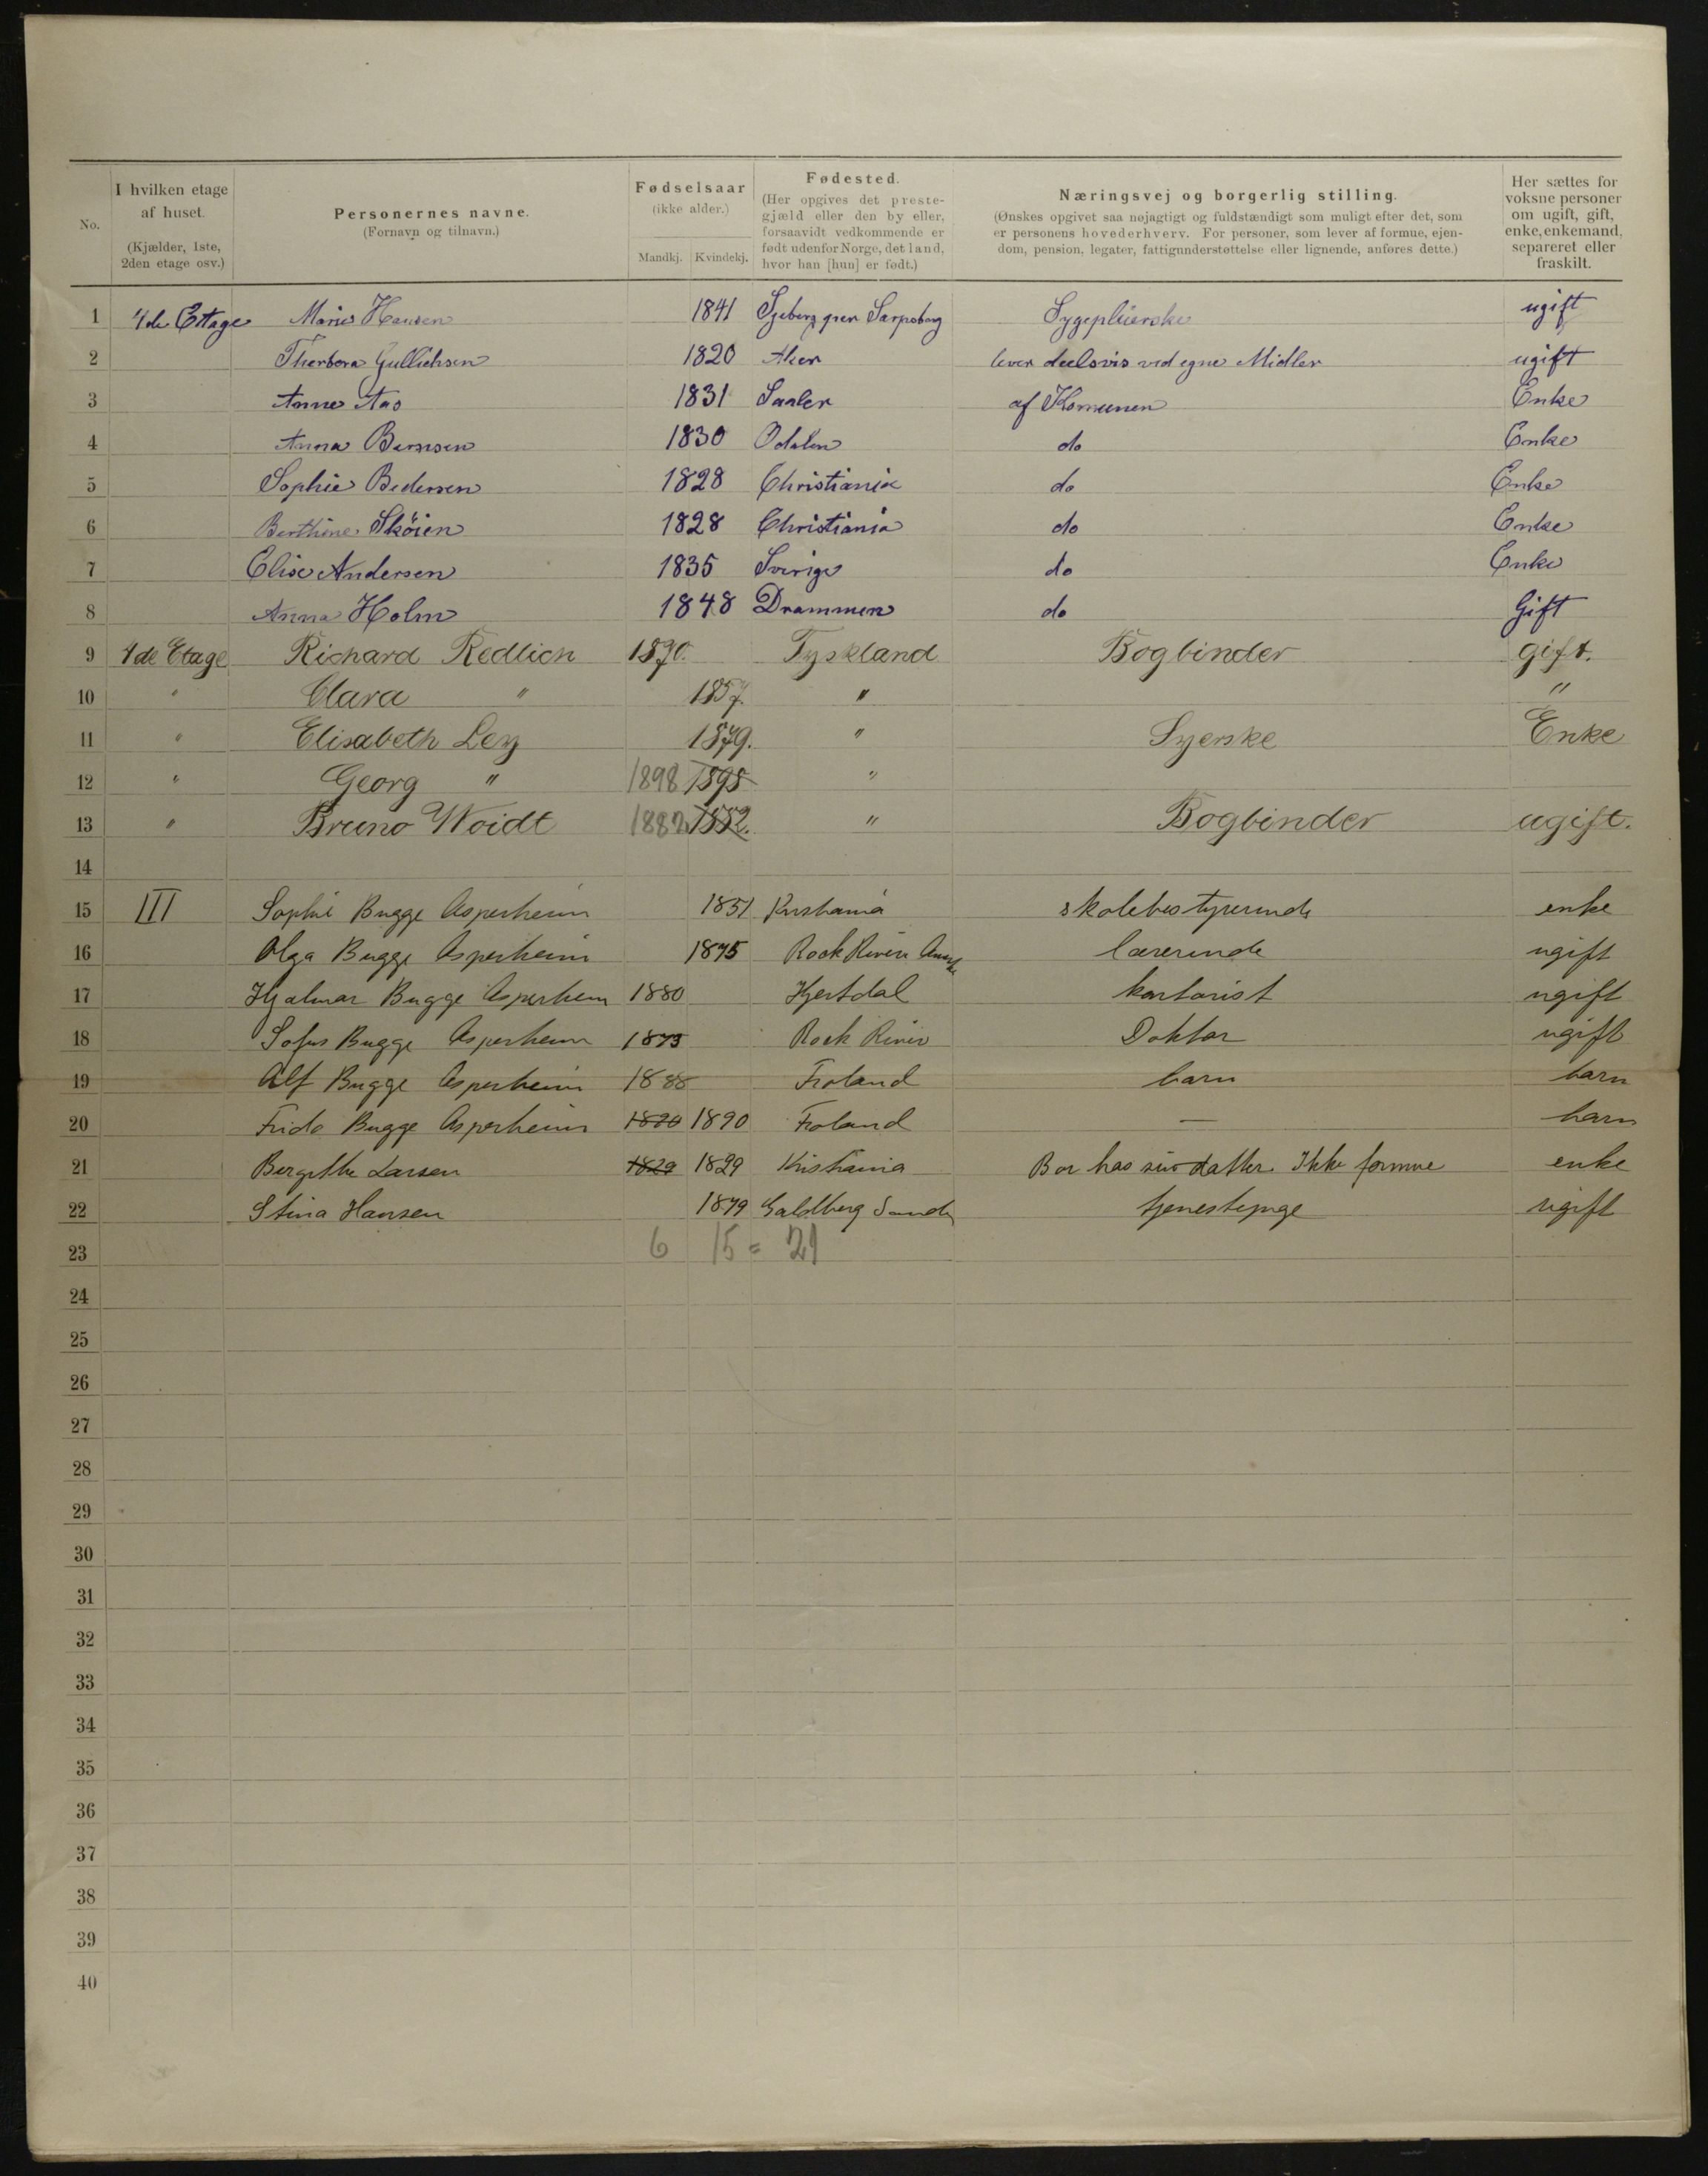 No. | I hvilken etage af huset. (Kjælder, 1ste, 2den etage osv.) | Personernes navne. (Fornavn og tilnavn.) | Fødselsaar (ikke alder.) Mandkj. Kvindekj. | Fødested. (Her opgives det prestegjæld eller den by eller, forsaavidt vedkommende er født udenfor Norge, det land, hvor han [hun] er født.) | Næringsvej og borgerlig stilling. (Ønskes opgivet saa nøjagtigt og fuldstændigt som muligt efter det, som er personens hovederhverv. For personer, som lever af formue, ejendom, pension, legater, fattigunderstøttelse eller lignende, anføres dette.) | Her sættes for voksne personer om ugift, gift, enke, enkemand, separeret eller fraskilt.
1 4de Ettage Marie Hansen 1841 Sarpsborg Sygepleierske ugift
2 Thorbora Gullichsen 1820 Aker lever deelsvis ved egne Midler ugift
3 Anne Aas 1831 Saaler af Komunen Enke
4 Anna Berntsen 1830 Odalen do Enke
5 Sophie Pedersen 1828 Christiania do Enke
6 Berthine Sköien 1828 Christiania do Enke
7 Elise Andersen 1835 Sverige do Enke
8 Anna Holm 1848 Drammen do Gift
9 4de Etage Richard Redlich 1870. Tyskland Bogbinder gift.
10 " Clara " 1857. " "
11 " Elisabeth Ley 1879. " Syerske Enke
12 " Georg " 1898 1898 "
13 " Bruno Woidt 1882 1882. " Bogbinder ugift.
14
15 III Sophie Bugge Asperheim 1851 Kristiania skolebestyrerinde enke
16 Olga Bugge Asperheim 1875 Rock River lærerinde ugift
17 Hjalmar Bugge Asperheim 1880 Hjertdal kontorist ugift
18 Sofus Bugge Asperheim 1873 Rock River Doktor ugift
19 Alf Bugge Asperheim 1888 Froland barn barn
20 Frida Bugge Asperheim 1890 1890 Froland — barn
21 Bergitte Larsen 1829 1829 Kristiania Bor hos sin datter. Ikke formue enke
22 Stina Hansen 1879 tjenestepige ugift
23 6 15 = 21
24
25
26
27
28
29
30
31
32
33
34
35
36
37
38
39
40